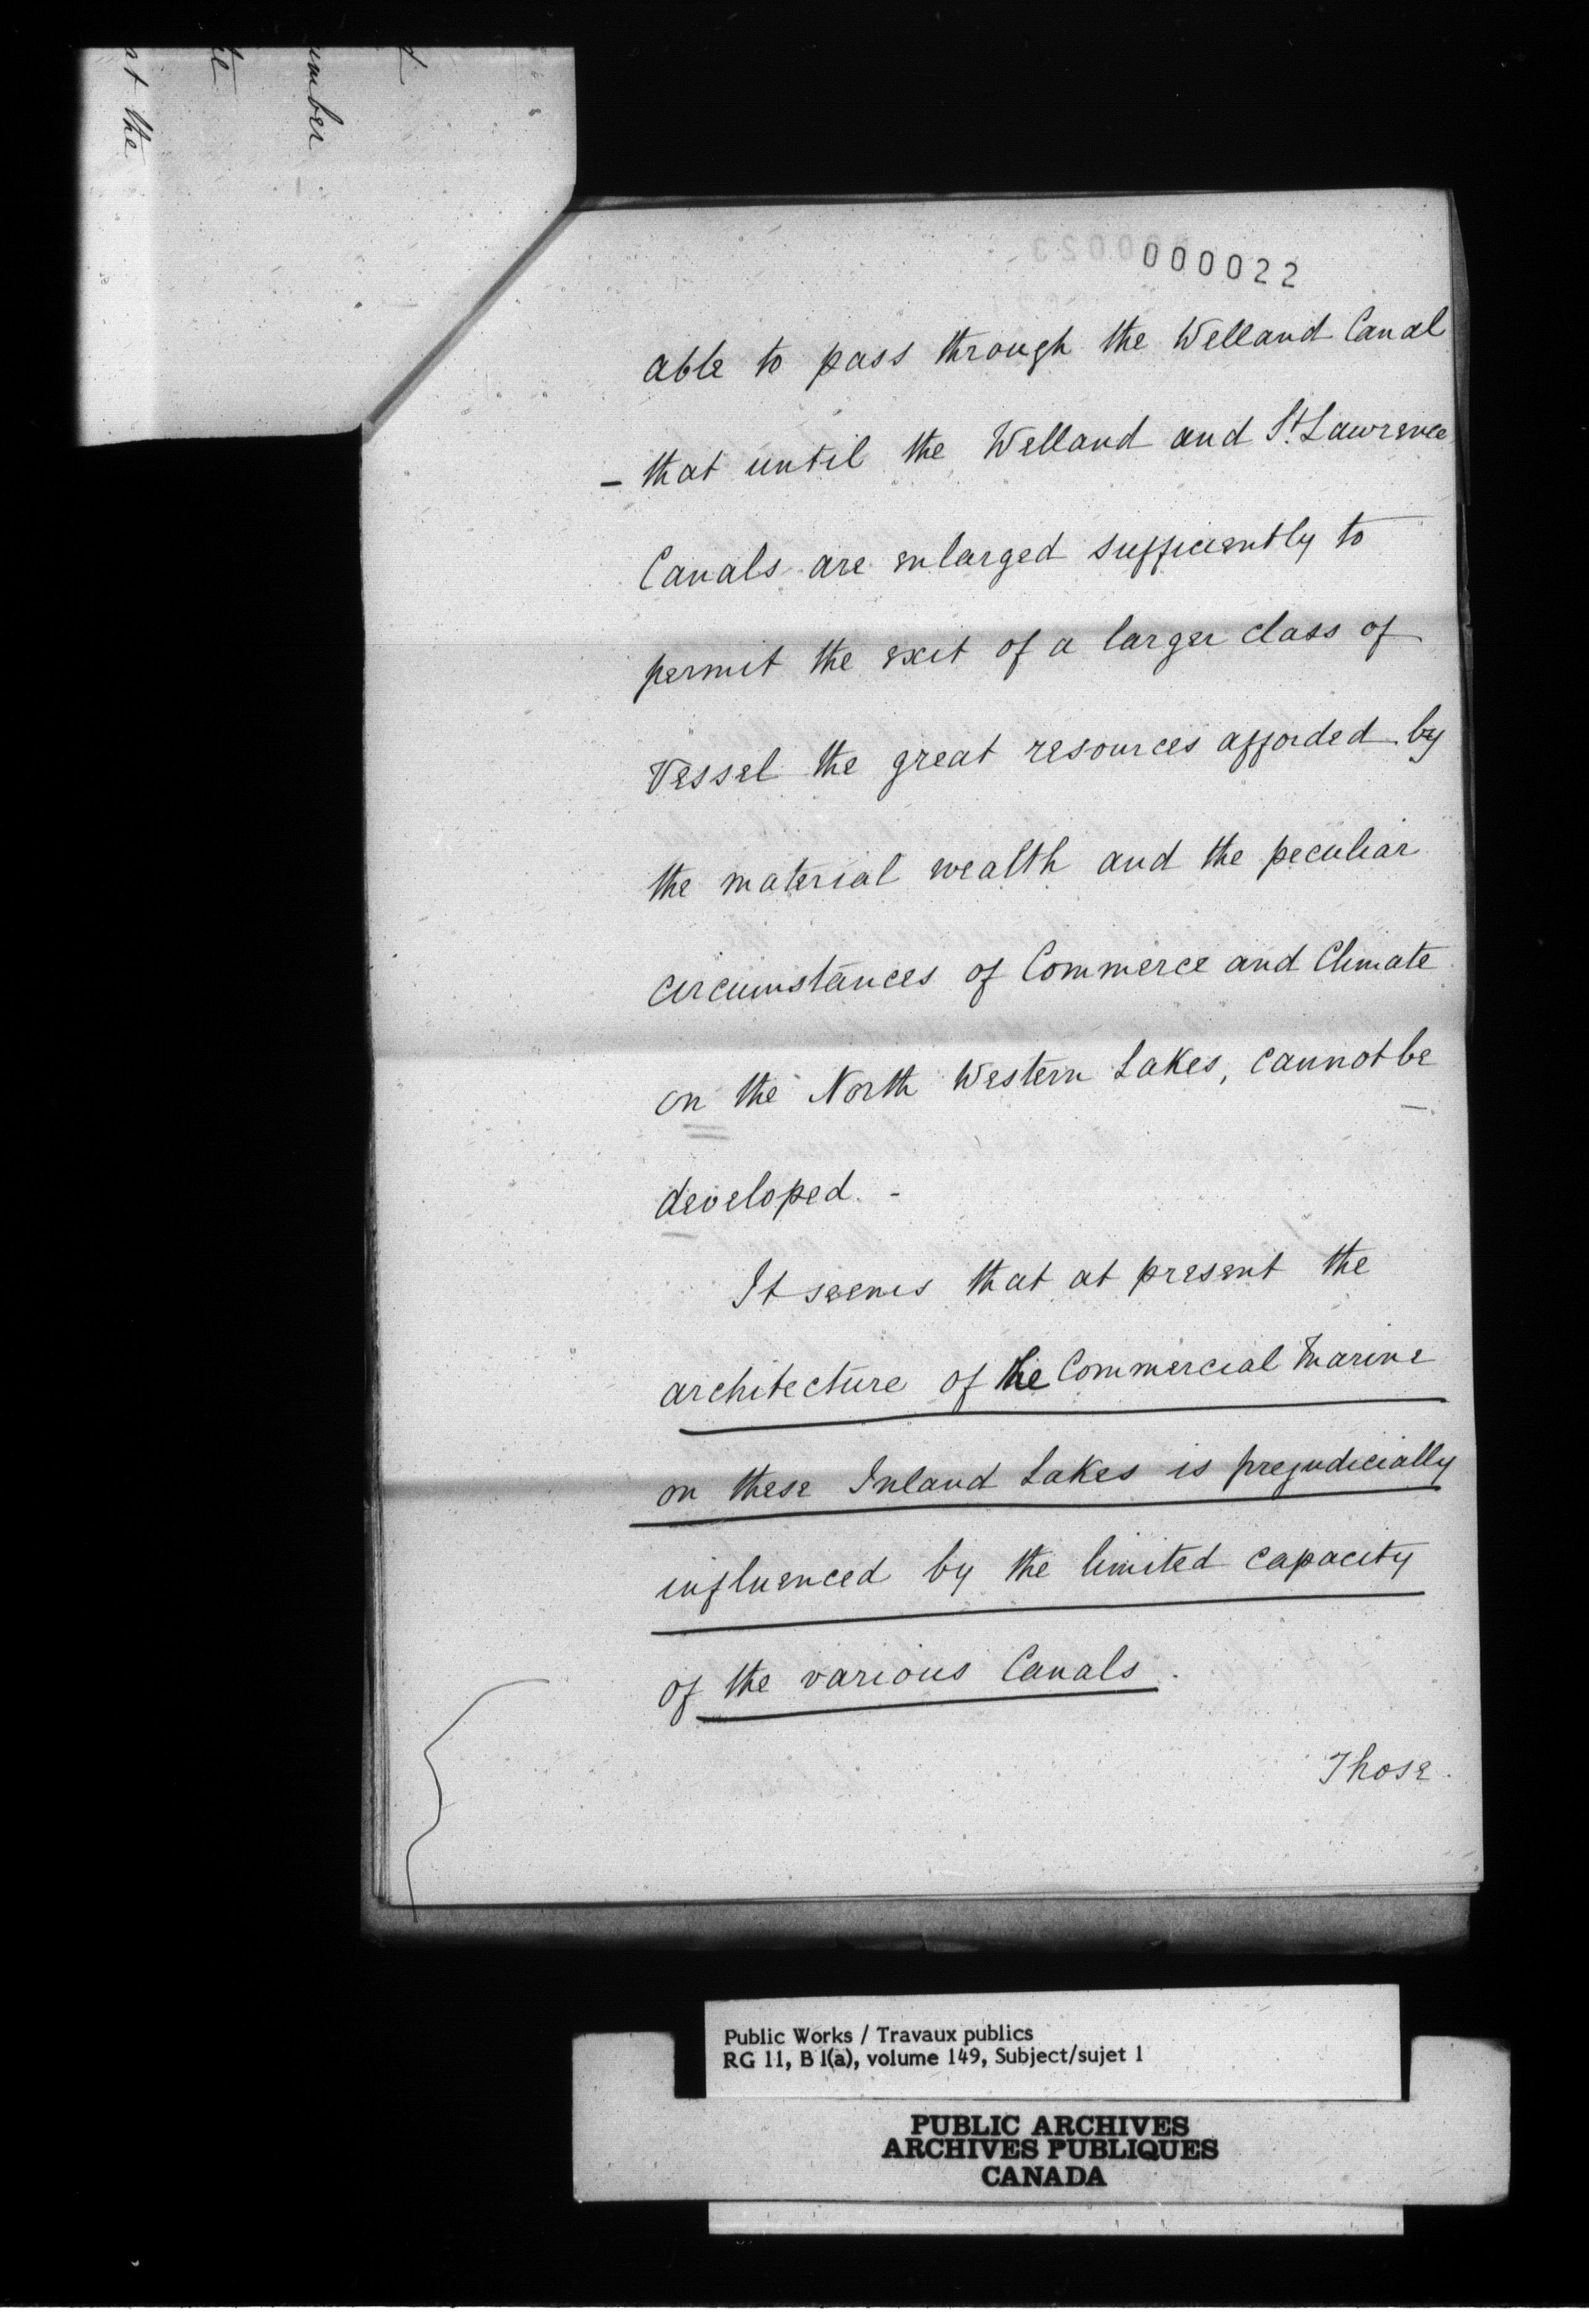 umber
te
at the
000022
able to pass through the Welland Canal
- that until the Welland and St. Lawrence
Canals are enlarged sufficiently to
permit the exit of a larger class of
Vessel the great resources afforded by
the material wealth and the peculiar
circumstances of Commerce and Climate
on the North Western Lakes, cannot be
developed. -
It seems that at present the
architecture of the Commercial Marine
on these Inland Lakes is prejudicially
influenced by the limited capacity
of the various Canals.
Those
Public Works / Travaux publics
RG 11, B 1(a), volume 149, Subject/sujet 1
PUBLIC ARCHIVES
ARCHIVES PUBLIQUES
CANADA